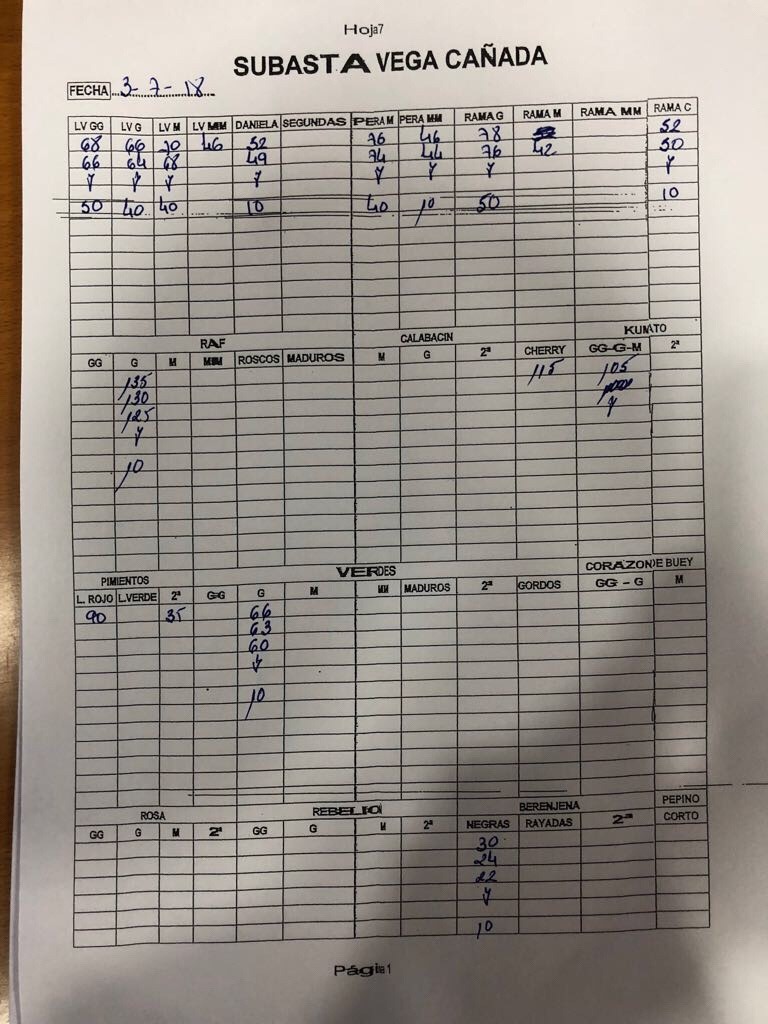 Hoja7
SUBASTA VEGA CAÑADA
FECHA 3-7-18
LV GG LV G LV M LV MM DANIELA SEGUNDAS PERA M PERA MM RAMA G RAMA M RAMA MM RAMA C
68 66 70 46 52 76 46 78 52
66 64 68 49 74 44 76 42 50
y y y y y y y y
50 40 40 10 40 10 50 10
RAF CALABACIN KUMATO
GG G M MM ROSCOS MADUROS M G 2ª CHERRY GG-G-M 2ª
135 115 105
130
125 y
y
10
PIMIENTOS VERDES CORAZON DE BUEY
L. ROJO L.VERDE 2ª GG G M MM MADUROS 2ª GORDOS GG - G M
90 35 66
63
60
y
10
ROSA REBELIO BERENJENA PEPINO
GG G M 2ª GG G M 2ª NEGRAS RAYADAS 2ª CORTO
30
24
22
y
10
Página 1